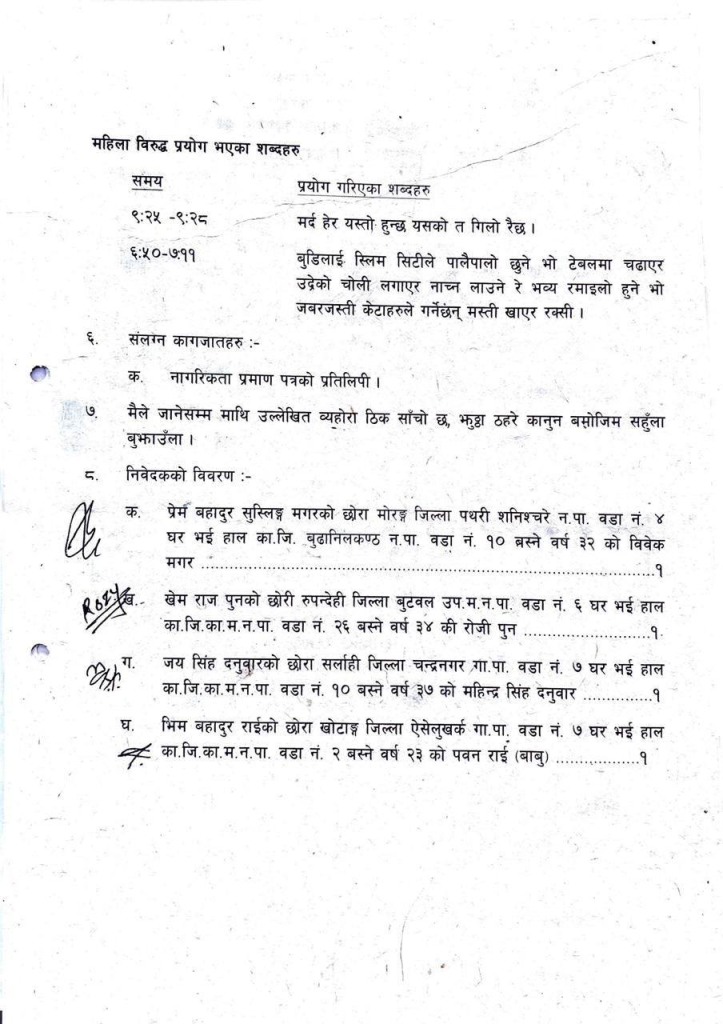 महिला विरुद्ध प्रयोग भएका शब्दहरु
समय प्रयोग गरिएका शब्दहरु
९:२५ -९:२८ मर्द हेर यस्तो हुन्छ यसको त गिलो रैछ ।
६:५०-७:११ बुडिलाई स्लिम सिटीले पालैपालो छुने भो टेबलमा चढाएर
उद्रेको चोली लगाएर नाच्न लाउने रे भव्य रमाइलो हुने भो
जबरजस्ती केटाहरुले गर्नेछन् मस्ती खाएर रक्सी ।
६. संलग्न कागजातहरु :-
क. नागरिकता प्रमाण पत्रको प्रतिलिपी ।
७. मैले जानेसम्म माथि उल्लेखित व्यहोरा ठिक साँचो छ, झुठ्ठा ठहरे कानुन बमोजिम सहुँला
बुझाउँला ।
८. निवेदकको विवरण :-
क. प्रेम बहादुर सुस्लिङ्ग मगरको छोरा मोरङ्ग जिल्ला पथरी शनिश्चरे न.पा. वडा नं. ४
घर भई हाल का.जि. बुढानिलकण्ठ न.पा. वडा नं. १० बस्ने वर्ष ३२ को विवेक
मगर ..........................................................................१
ROZY ख. खेम राज पुनको छोरी रुपन्देही जिल्ला बुटवल उप.म.न.पा. वडा नं. ६ घर भई हाल
का.जि.का.म.न.पा. वडा नं. २६ बस्ने वर्ष ३४ की रोजी पुन ....................१
ग. जय सिंह दनुवारको छोरा सर्लाही जिल्ला चन्द्रनगर गा.पा. वडा नं. ७ घर भई हाल
का.जि.का.म.न.पा. वडा नं. १० बस्ने वर्ष ३७ को महिन्द्र सिंह दनुवार ..............१
घ. भिम बहादुर राईको छोरा खोटाङ्ग जिल्ला ऐसेलुखर्क गा.पा. वडा नं. ७ घर भई हाल
का.जि.का.म.न.पा. वडा नं. २ बस्ने वर्ष २३ को पवन राई (बाबु) ..................१